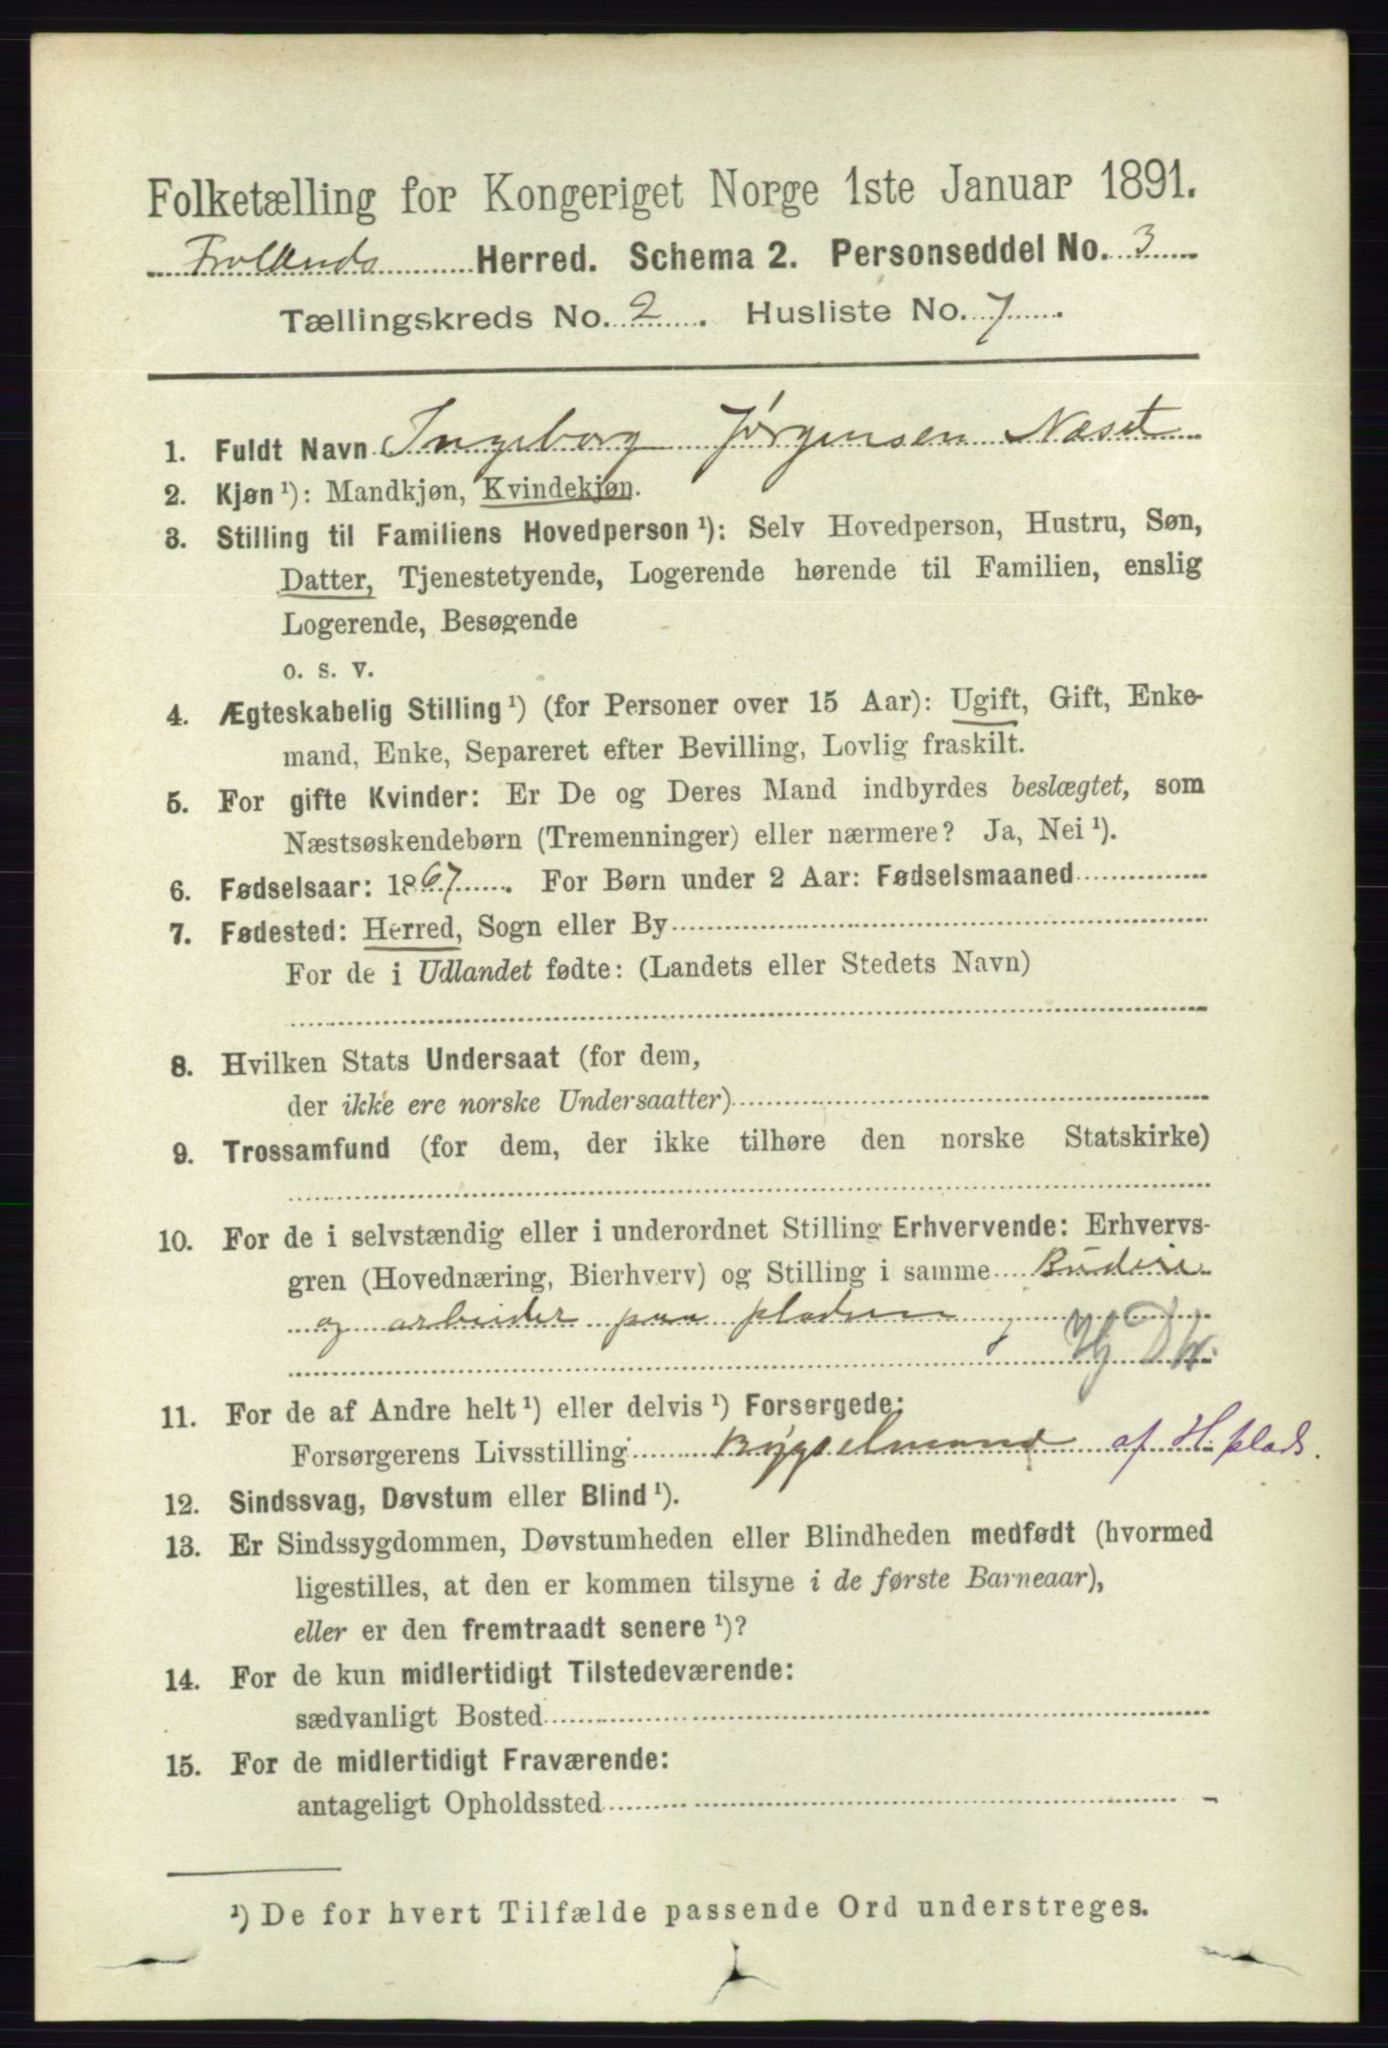 Folketælling for Kongeriget Norge 1ste Januar 1891.
Frolands Herred. Schema 2. Personseddel No. 3
Tællingskreds No. 2. Husliste No. 7.
1. Fuldt Navn Ingeborg Jørgensen Næset
2. Kjøn ¹): Mandkjøn, Kvindekjøn.
3. Stilling til Familiens Hovedperson ¹): Selv Hovedperson, Hustru, Søn,
Datter, Tjenestetyende, Logerende hørende til Familien, enslig
Logerende, Besøgende
o. s. v.
4. Ægteskabelig Stilling ¹) (for Personer over 15 Aar): Ugift, Gift, Enke-
mand, Enke, Separeret efter Bevilling, Lovlig fraskilt.
5. For gifte Kvinder: Er De og Deres Mand indbyrdes beslægtet, som
Næstsøskendebørn (Tremenninger) eller nærmere? Ja, Nei ¹).
6. Fødselsaar: 1867. For Børn under 2 Aar: Fødselsmaaned
7. Fødested: Herred, Sogn eller By
For de i Udlandet fødte: (Landets eller Stedets Navn)
8. Hvilken Stats Undersaat (for dem,
der ikke ere norske Undersaatter)
9. Trossamfund (for dem, der ikke tilhøre den norske Statskirke)
10. For de i selvstændig eller i underordnet Stilling Erhvervende: Erhvervs-
gren (Hovednæring, Bierhverv) og Stilling i samme Budeie
og arbeider paa pladsen
11. For de af Andre helt ¹) eller delvis ¹) Forsørgede:
Forsørgerens Livsstilling Bygselmand af H.plads.
12. Sindssvag, Døvstum eller Blind ¹).
13. Er Sindssygdommen, Døvstumheden eller Blindheden medfødt (hvormed
ligestilles, at den er kommen tilsyne i de første Barneaar),
eller er den fremtraadt senere ¹)?
14. For de kun midlertidigt Tilstedeværende:
sædvanligt Bosted
15. For de midlertidigt Fraværende:
antageligt Opholdssted
¹) De for hvert Tilfælde passende Ord understreges.